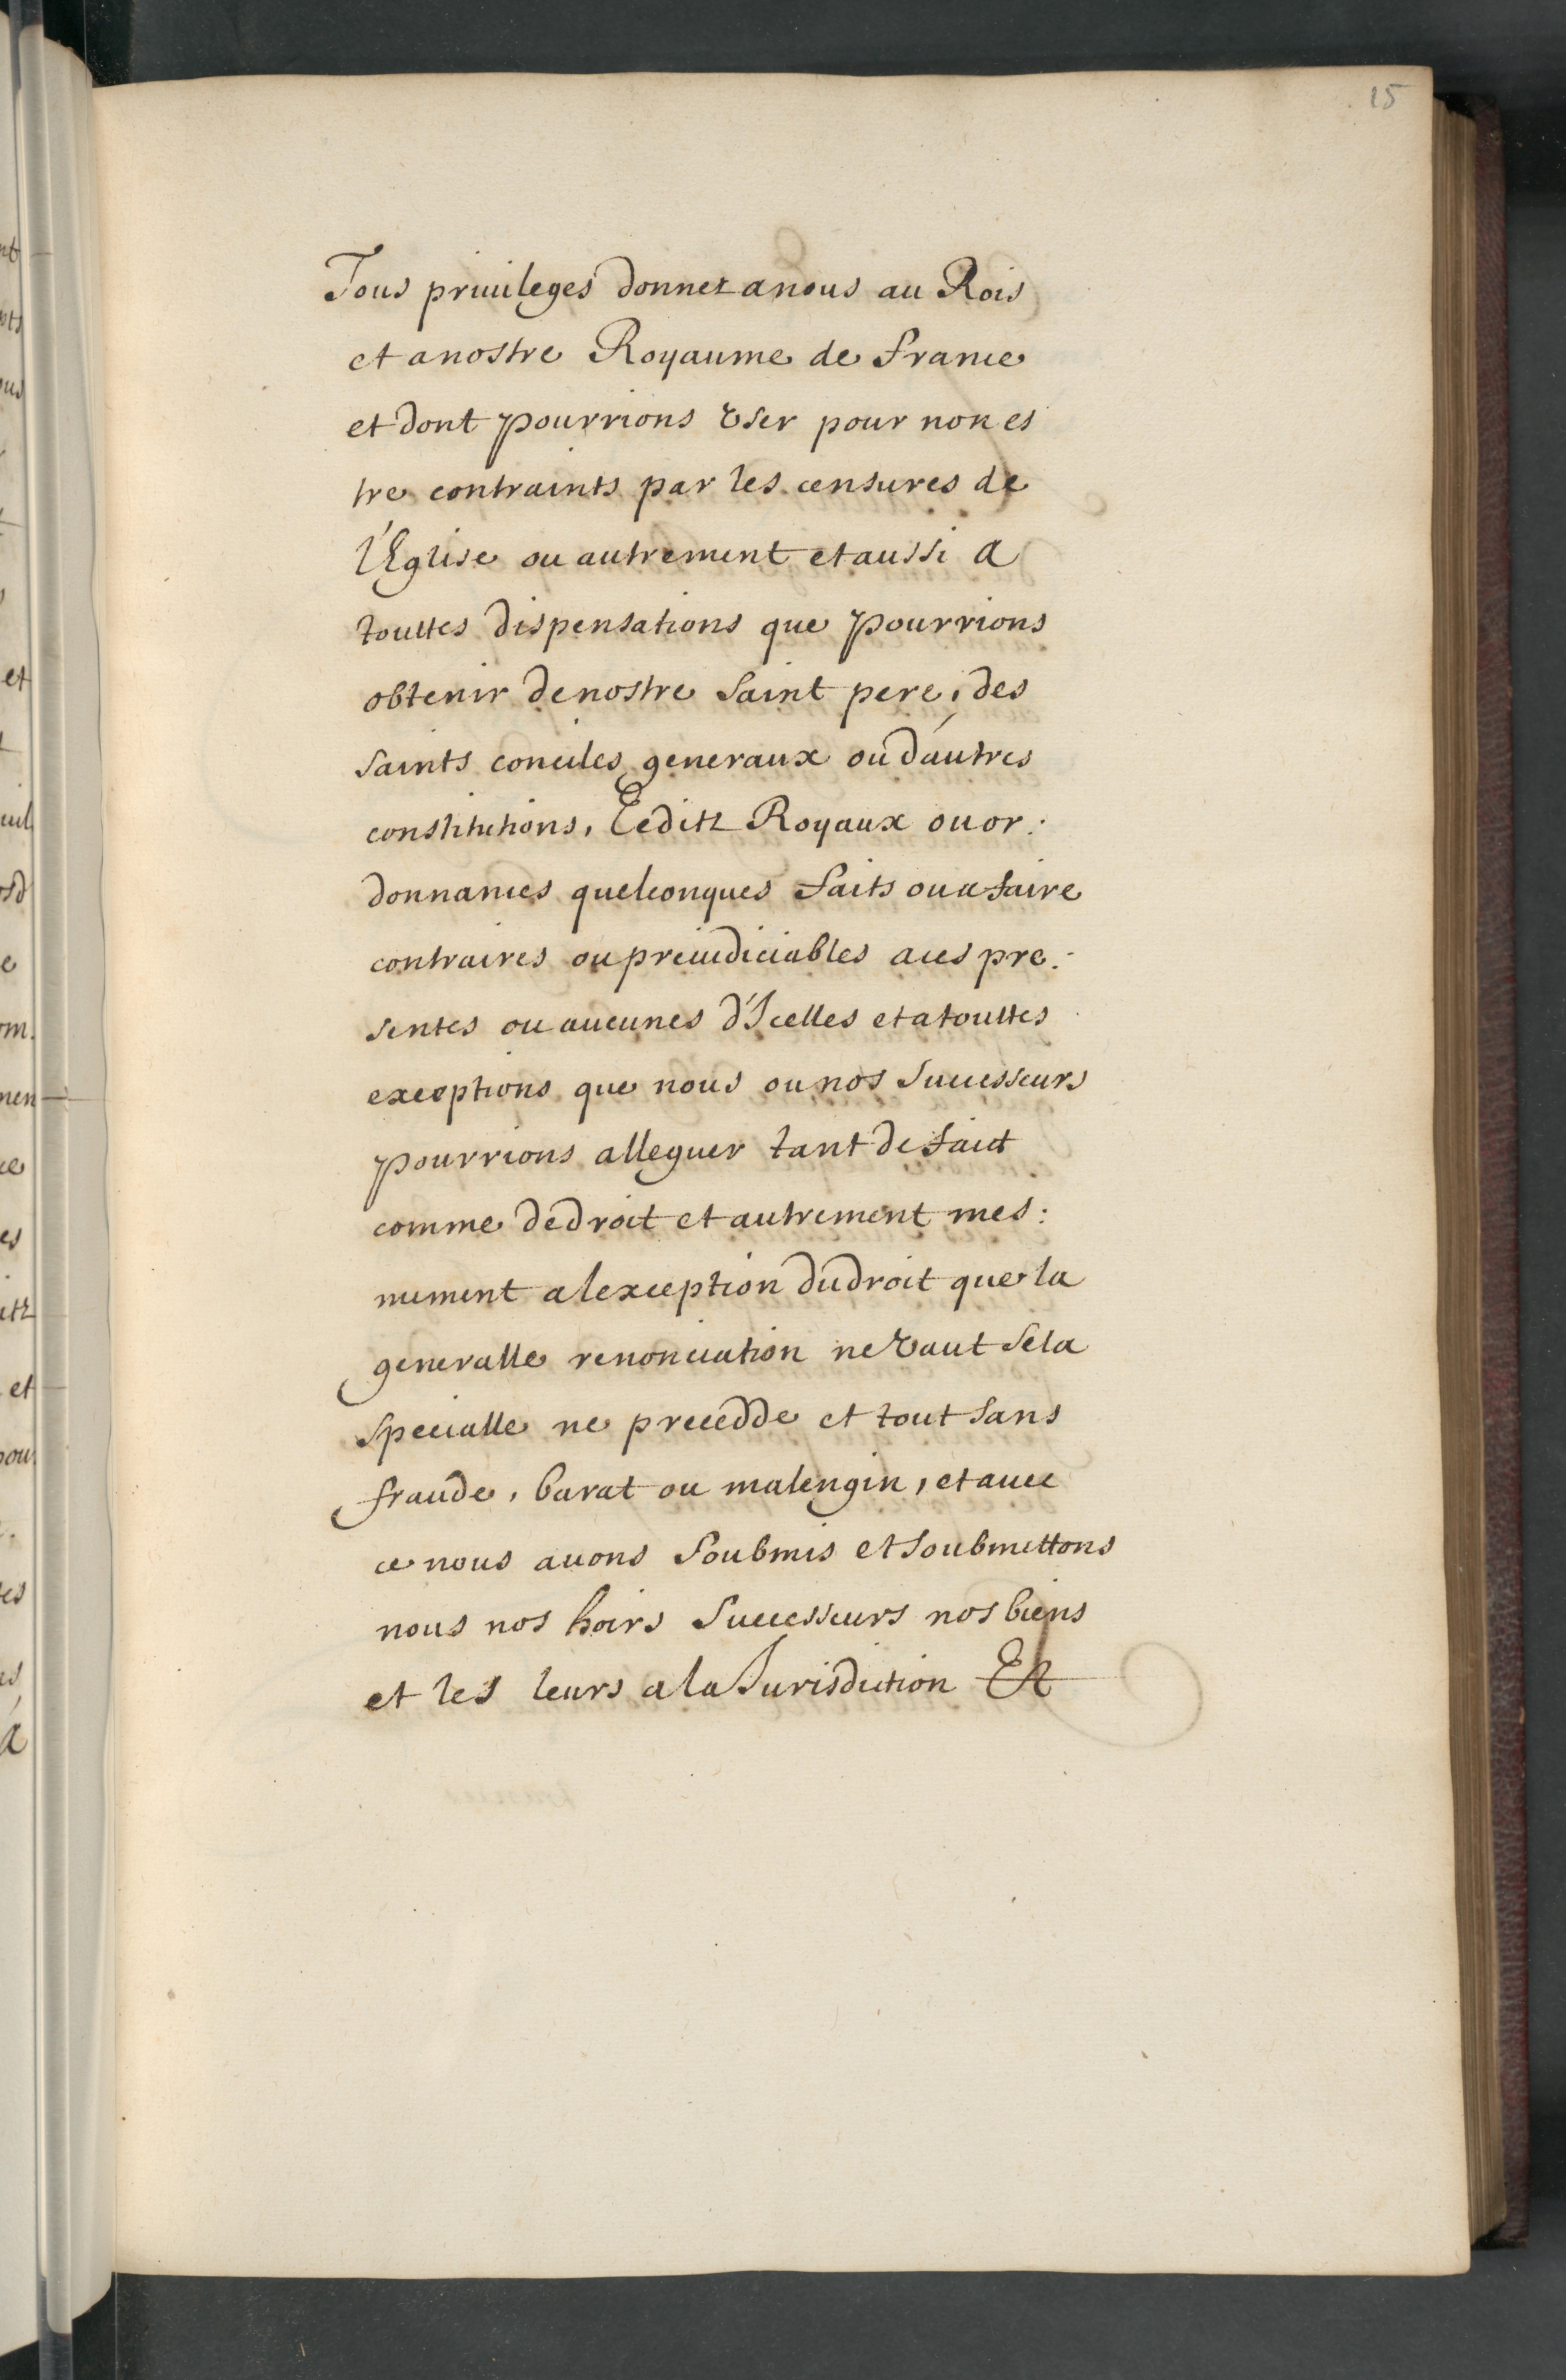 15
Tous priuileges donnez a nous au Rois
et a nostre Royaume de france
et dont pourrions vser pour non es
tre contraints par les censures de
l'Eglise ou autrement et aussi a
touttes dispensations que pourrions
obtenir de nostre saint pere, des
saints conciles generaux ou d'autres
constitutions, Eeditz Royaux ou or:
donnances quelconques faits ou a faire
contraires ou preiudiciables a ces pre:
sentes ou aucunes d'Icelles et a touttes
exceptions que nous ou nos successeurs
pourrions alleguer tant de faict
comme de droit et autrement mes:
mement a lexception du droit que la
generalle renonciation ne vaut se la
specialle ne precedde et tout sans
fraude, barat ou malengin, et auec
ce nous auons soubmis et soubmettons
nous nos hoirs successeurs nos biens
et les leurs a la Jurisdiction Et